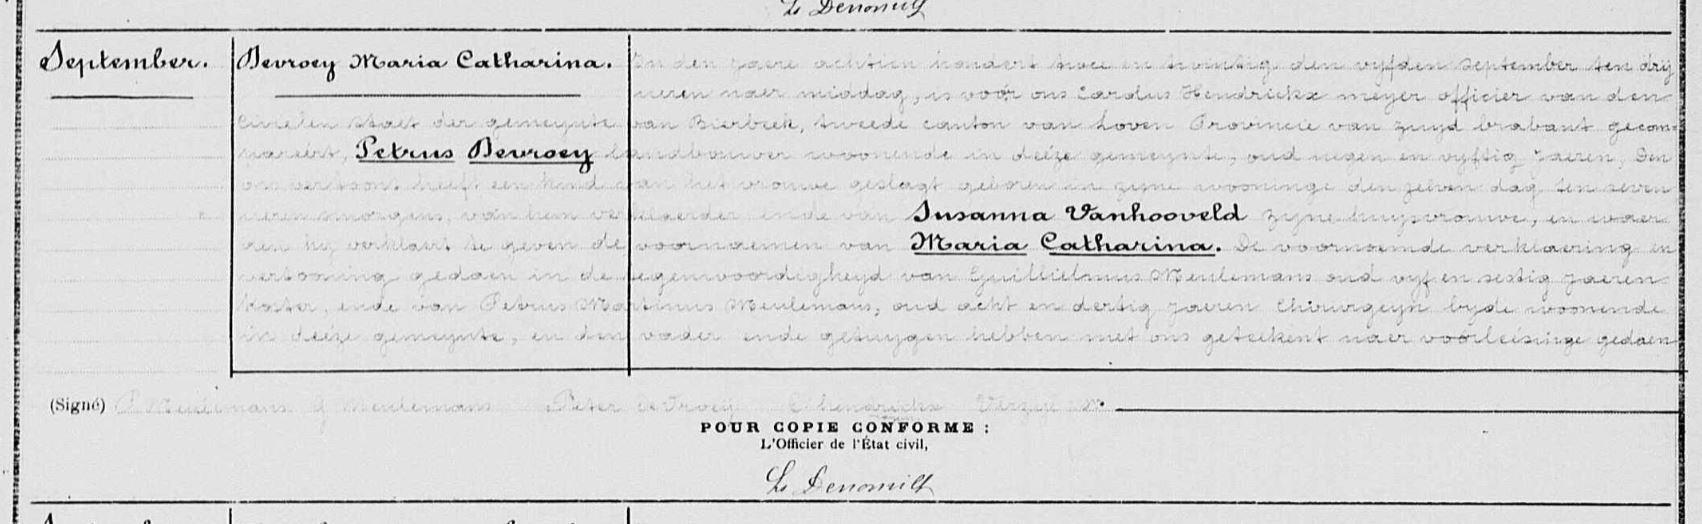 September. Devroey Maria Catharina. In den jaere achtien hondert twee en twintig den vyfden September ten drij
ueren naer middag, is voor ons Carolus Hendrickx meyer officier van den
Civielen staet der gemeynte van Bierbeek, tweede canton van Loven Provincie van zuyd brabant gecom-
pareert, Petrus Devroey landbouwer woonende in deéze gemeynte, oud negen en vyftig jaeren, Den
ons vertoont heeft een kind van het vrouwe geslagt geboren in zyne wooninge den zelven dag ten seven
ueren smorgens, van hem verklaerder ende van Susanna Vanhooveld zyne huysvrouwe, en waer
aen hy verklaert te geven de voornaemen van Maria Catharina. De voornoemde verklaering en
vertooning gedaen in de tegenwoordigheyd van Guillielmus Meulemans oud vyf en sestig jaeren
koster, ende van Petrus Martinus Meulemans, oud acht en dertig jaeren Chirurgeyn byde woonende
in deéze gemeynte, en den vader ende getuygen hebben met ons geteekent naer voórleésinge gedaen
(Signé) P Meulemans G Meulemans Peter deVroey C hendrickx
POUR COPIE CONFORME :
L'Officier de l'État civil,